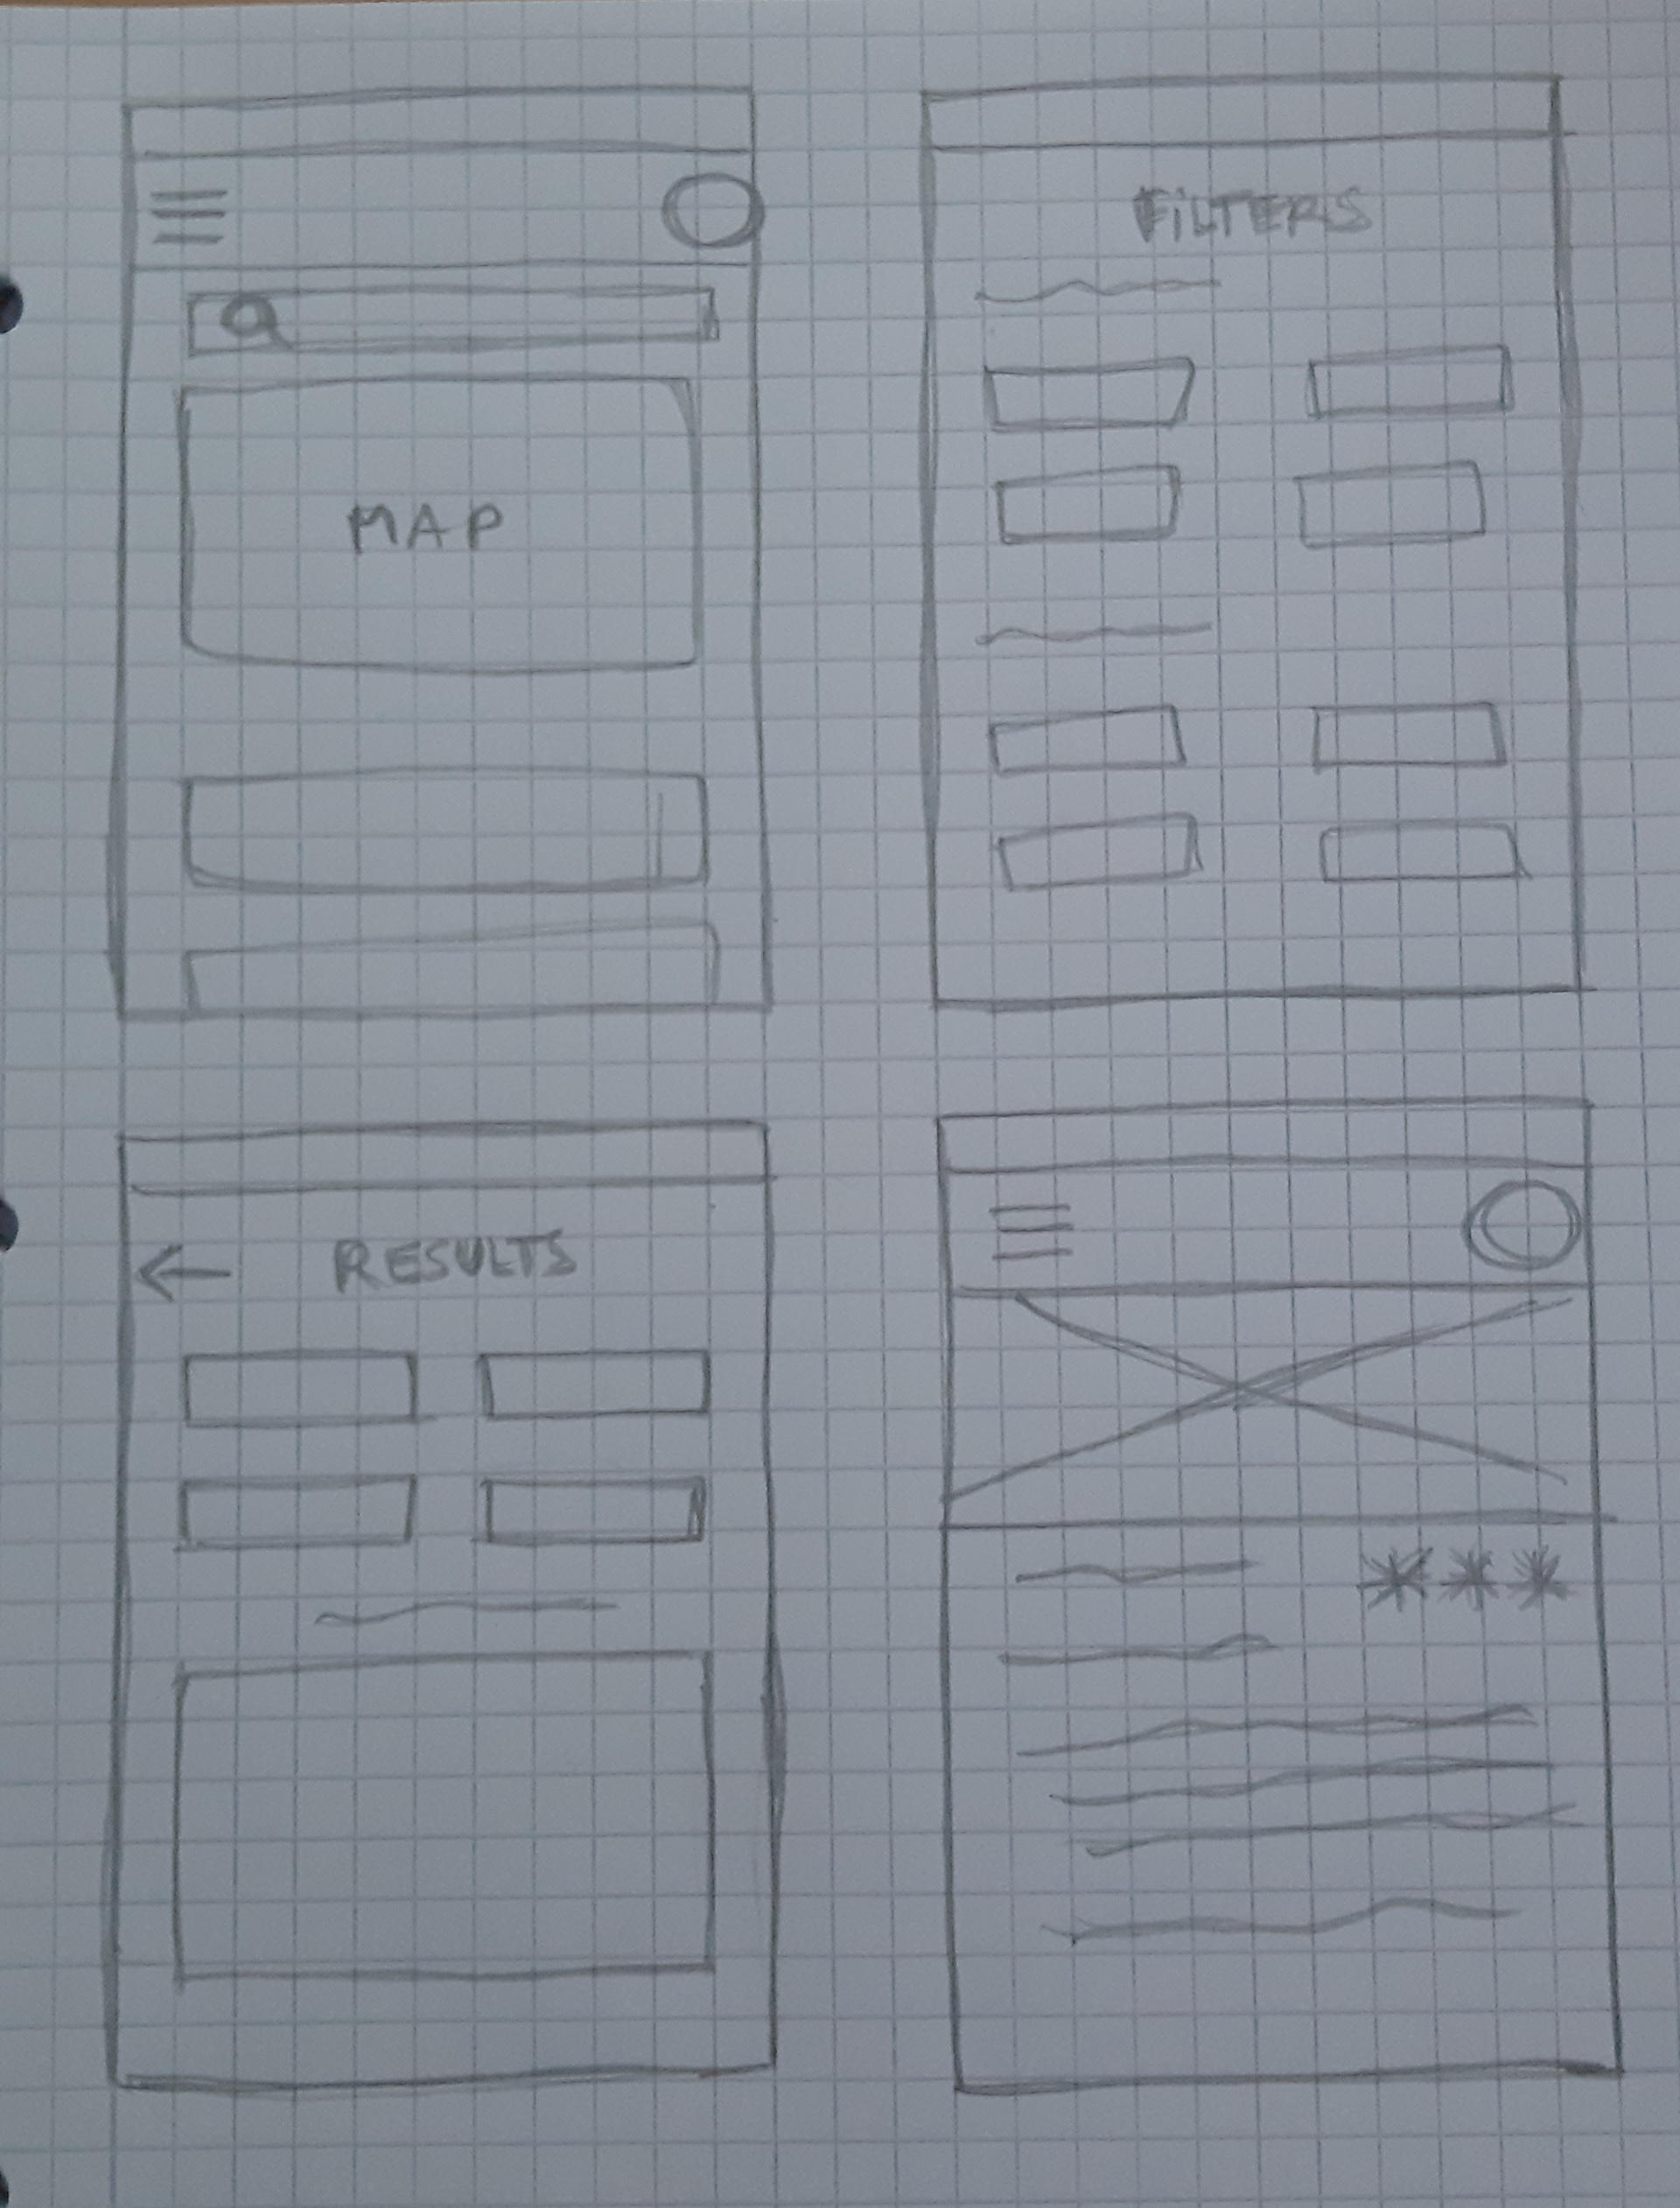 MAP
FiLTERS
RESULTS